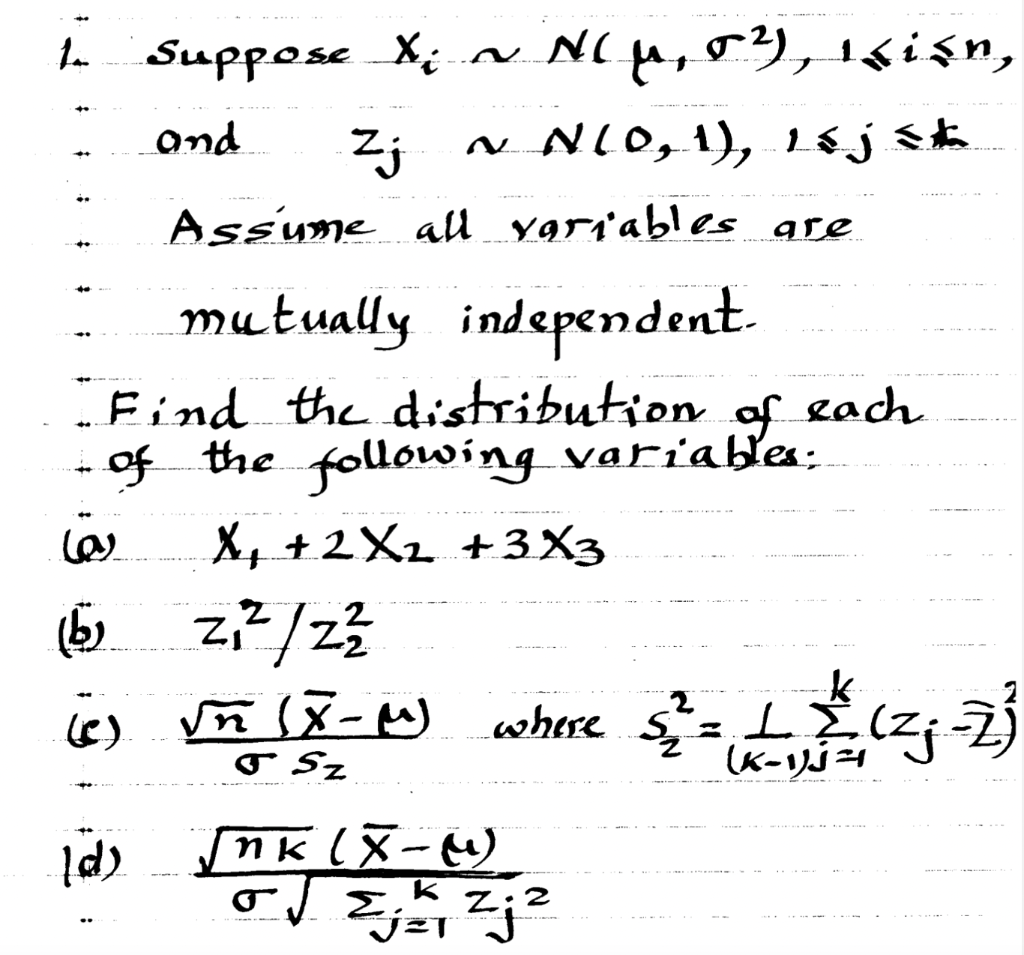 1. Suppose Xᵢ ~ N(μ, σ²), 1≤i≤n,
and Zⱼ ~ N(0, 1), 1≤j≤k
Assume all variables are
mutually independent.
Find the distribution of each
of the following variables:
(a) X₁ + 2X₂ + 3X₃
(b) Z₁²/Z₂²
(c) √n (X̄ - μ) / σ S_Z where S_Z² = 1/(K-1) Σⱼ₌₁ᵏ (Zⱼ - Z̄)²
(d) √nk (X̄ - μ) / σ √Σⱼ₌₁ᵏ Zⱼ²